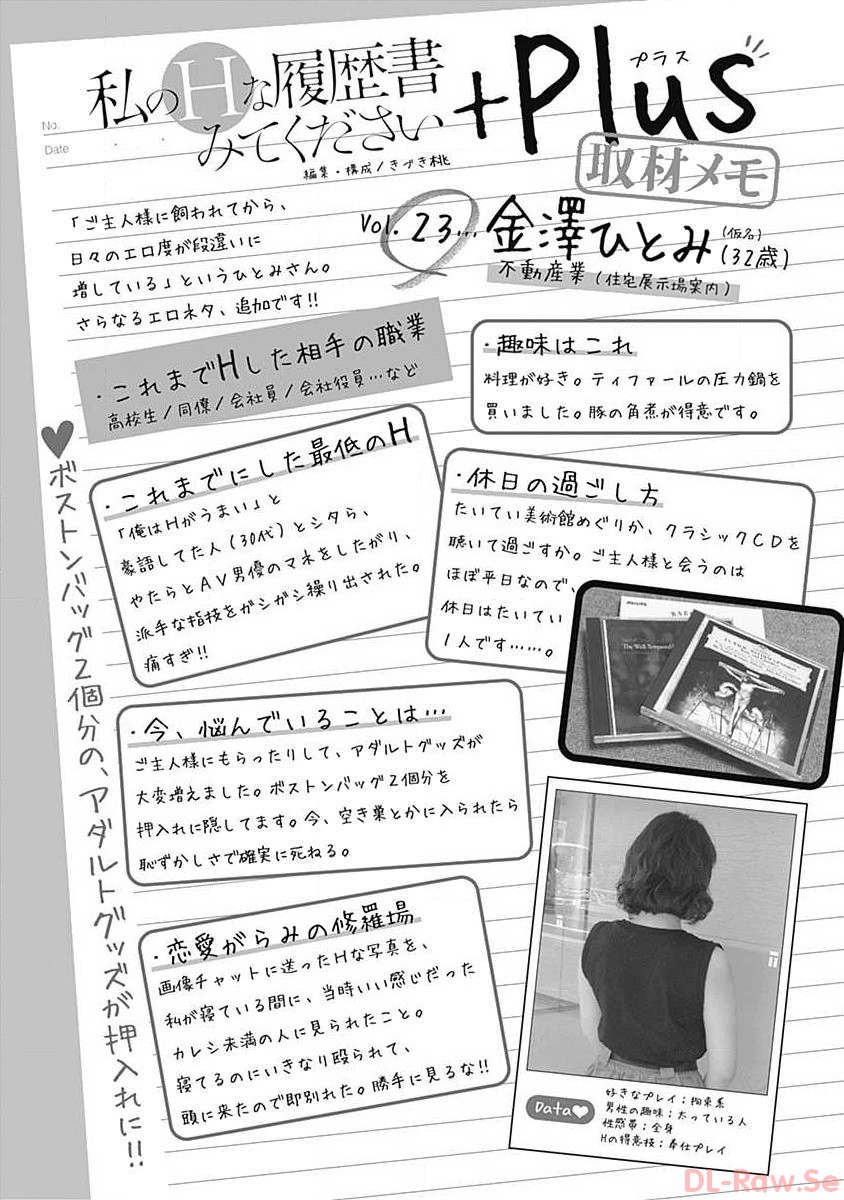 No.
Date
私のHな履歴書
みてください
+Plus
プラス
編集・構成/きづき桃
取材メモ
「ご主人様に飼われてから、
日々のエロ度が段違いに
増している」というひとみさん。
さらなるエロネタ、追加です!!
Vol.23… 金澤ひとみ (仮名) (32歳)
不動産業(住宅展示場案内)
・これまでHした相手の職業
高校生/同僚/会社員/会社役員…など
・趣味はこれ
料理が好き。ティファールの圧力鍋を
買いました。豚の角煮が得意です。
・これまでにした最低のH
「俺はHがうまい」と
豪語してた人(30代)とシタら、
やたらとAV男優のマネをしたがり、
派手な指技をガシガシ繰り出された。
痛すぎ!!
・休日の過ごし方
たいてい美術館めぐりか、クラシックCDを
聴いて過ごすか。ご主人様と会うのは
ほぼ平日なので、
休日はたいてい
1人です……。
The Well-Tempered
・今、悩んでいることは…
ご主人様にもらったりして、アダルトグッズが
大変増えました。ボストンバッグ2個分を
押入れに隠してます。今、空き巣とかに入られたら
恥ずかしさで確実に死ねる。
・恋愛がらみの修羅場
画像チャットに送ったHな写真を、
私が寝ている間に、当時いい感じだった
カレシ未満の人に見られたこと。
寝てるのにいきなり殴られて、
頭に来たので即別れた。勝手に見るな!!
♥ボストンバッグ2個分の、アダルトグッズが押入れに!!
Data♥
好きなプレイ;拘束系
男性の趣味;太っている人
性感帯;全身
Hの得意技;奉仕プレイ
DL-Raw.Se